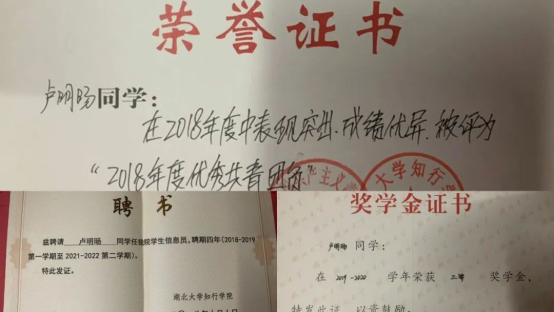 荣誉证书
卢明旸同学：
在2018年度中表现突出、成绩优异、被评为
“2018年度优秀共青团员”
大学知行
聘书
兹聘请 卢明旸 同学任我院学生信息员，聘期四年（2018-2019
第一学期至2021-2022第二学期）。
特此发证。
湖北大学知行学院
奖学金证书
卢明旸同学：
在 2019-2020 学年荣获 三等 奖学金，
特发此证，以资鼓励。